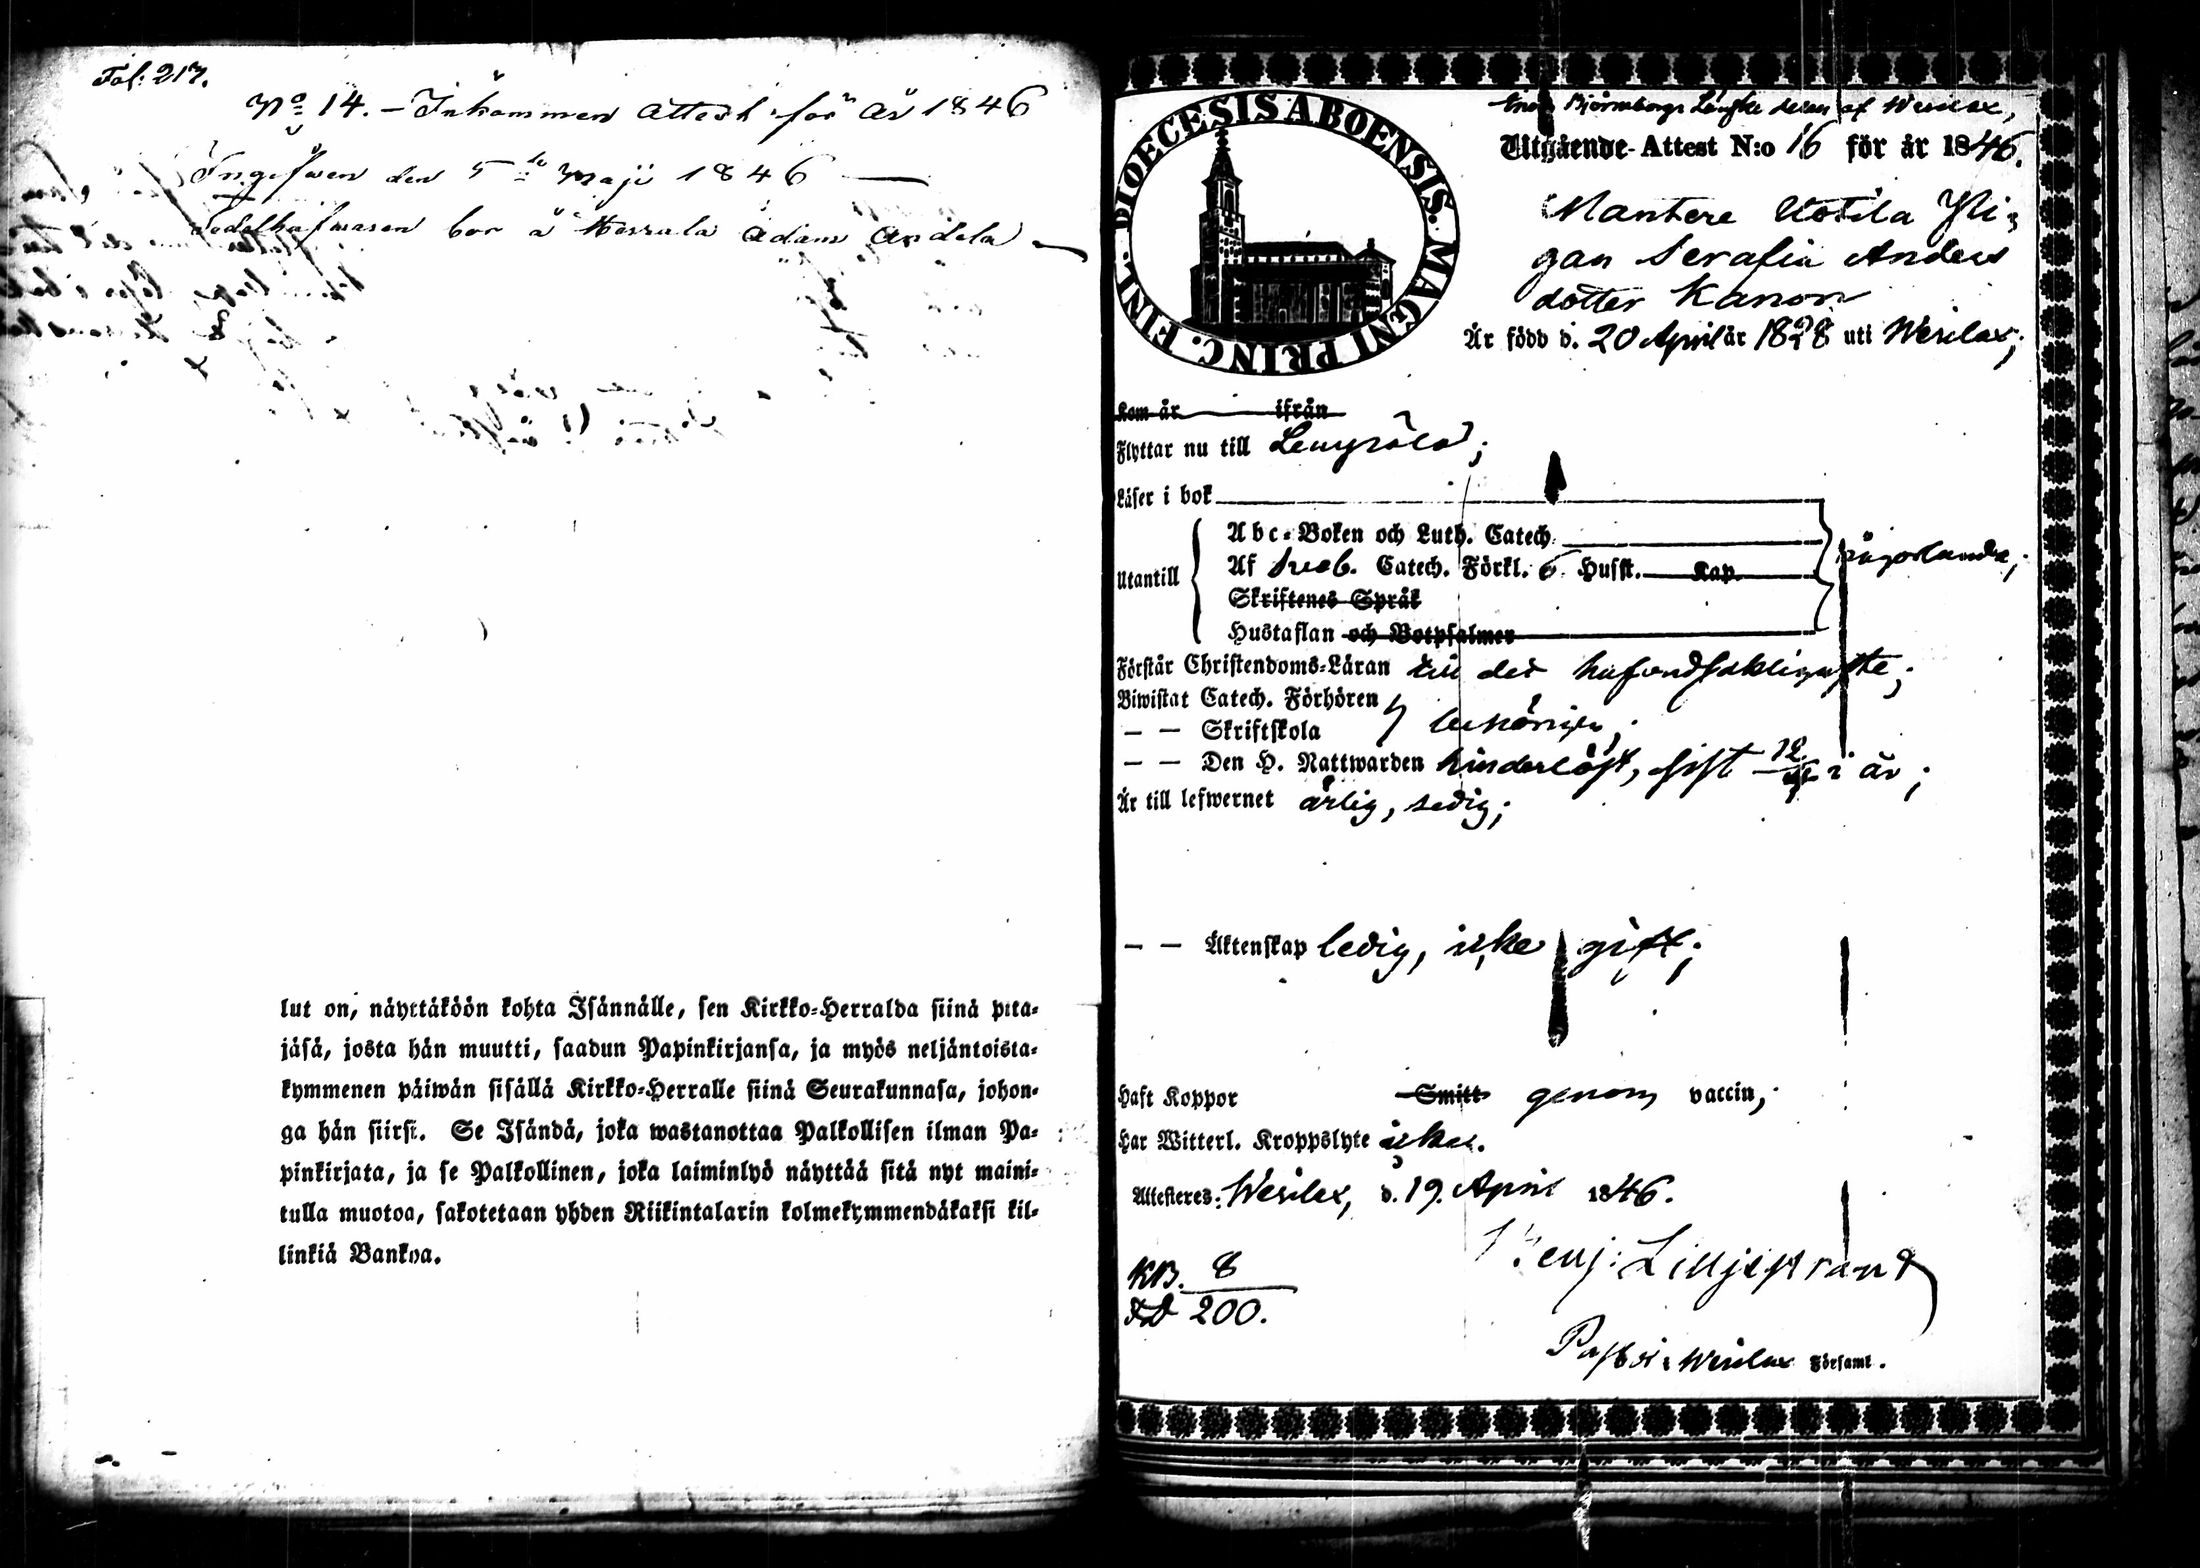 Fol: 217.
No 14. – Inkommen Attest för År 1846
Ingifwen den 5te Maji 1846
bor å Herrala Adams Andela
lut on, näyttäköön kohta Isännälle, sen Kirkko-Herralda siinä pitä-
jäsä, josta hän muutti, saadun Papinkirjansa, ja myös neljäntoista-
kymmenen päiwän sisällä Kirkko-Herralle siinä Seurakunnasa, johon-
ga hän siirsi. Se Isändä, joka wastanottaa Palkollisen ilman Pa-
pinkirjata, ja se Palkollinen, joka laiminlyö näyttää sitä nyt maini-
tulla muotoa, sakotetaan yhden Riikintalarin kolmekymmendäkaksi kil-
linkiä Bankoa.
DIOECESIS ABOENSIS. MAGNI PRINC. FINL.
Björneborgs Län, af Wesilax,
Utgående-Attest N:o 16 för år 1846.
Mantere Uotila Pi-
gan Serafia Anders
dotter Kanon
Är född d. 20 April år 1828 uti Wesilax;
Kom år ifrån
Flyttar nu till Lempälä;
Läser i bok
Utantill
Abc-Boken och Luth. Catech.
Af Sveb. Catech. Förkl. 6 Hufst. Kap.
någorlunda;
Skriftenes Språk
Hustaflan och Botpsalmer
Förstår Christendoms-Läran till det hufvudsakligaste;
Biwistat Catech. Förhören
— — Skriftskola behörigen;
— — Den H. Nattwarden hinderlöst, sist i år;
Är till lefwernet ärlig, sedig;
— — Äktenskap ledig, icke gift;
Haft Koppor Smitt genom vaccin;
Har Witterl. Kroppslyte icke.
Attesteres: Wesilax, d. 19. April 1846.
KB. 8
Fol 200.
Benj: Lilljestrand
Pastor i Wesilax Församl.